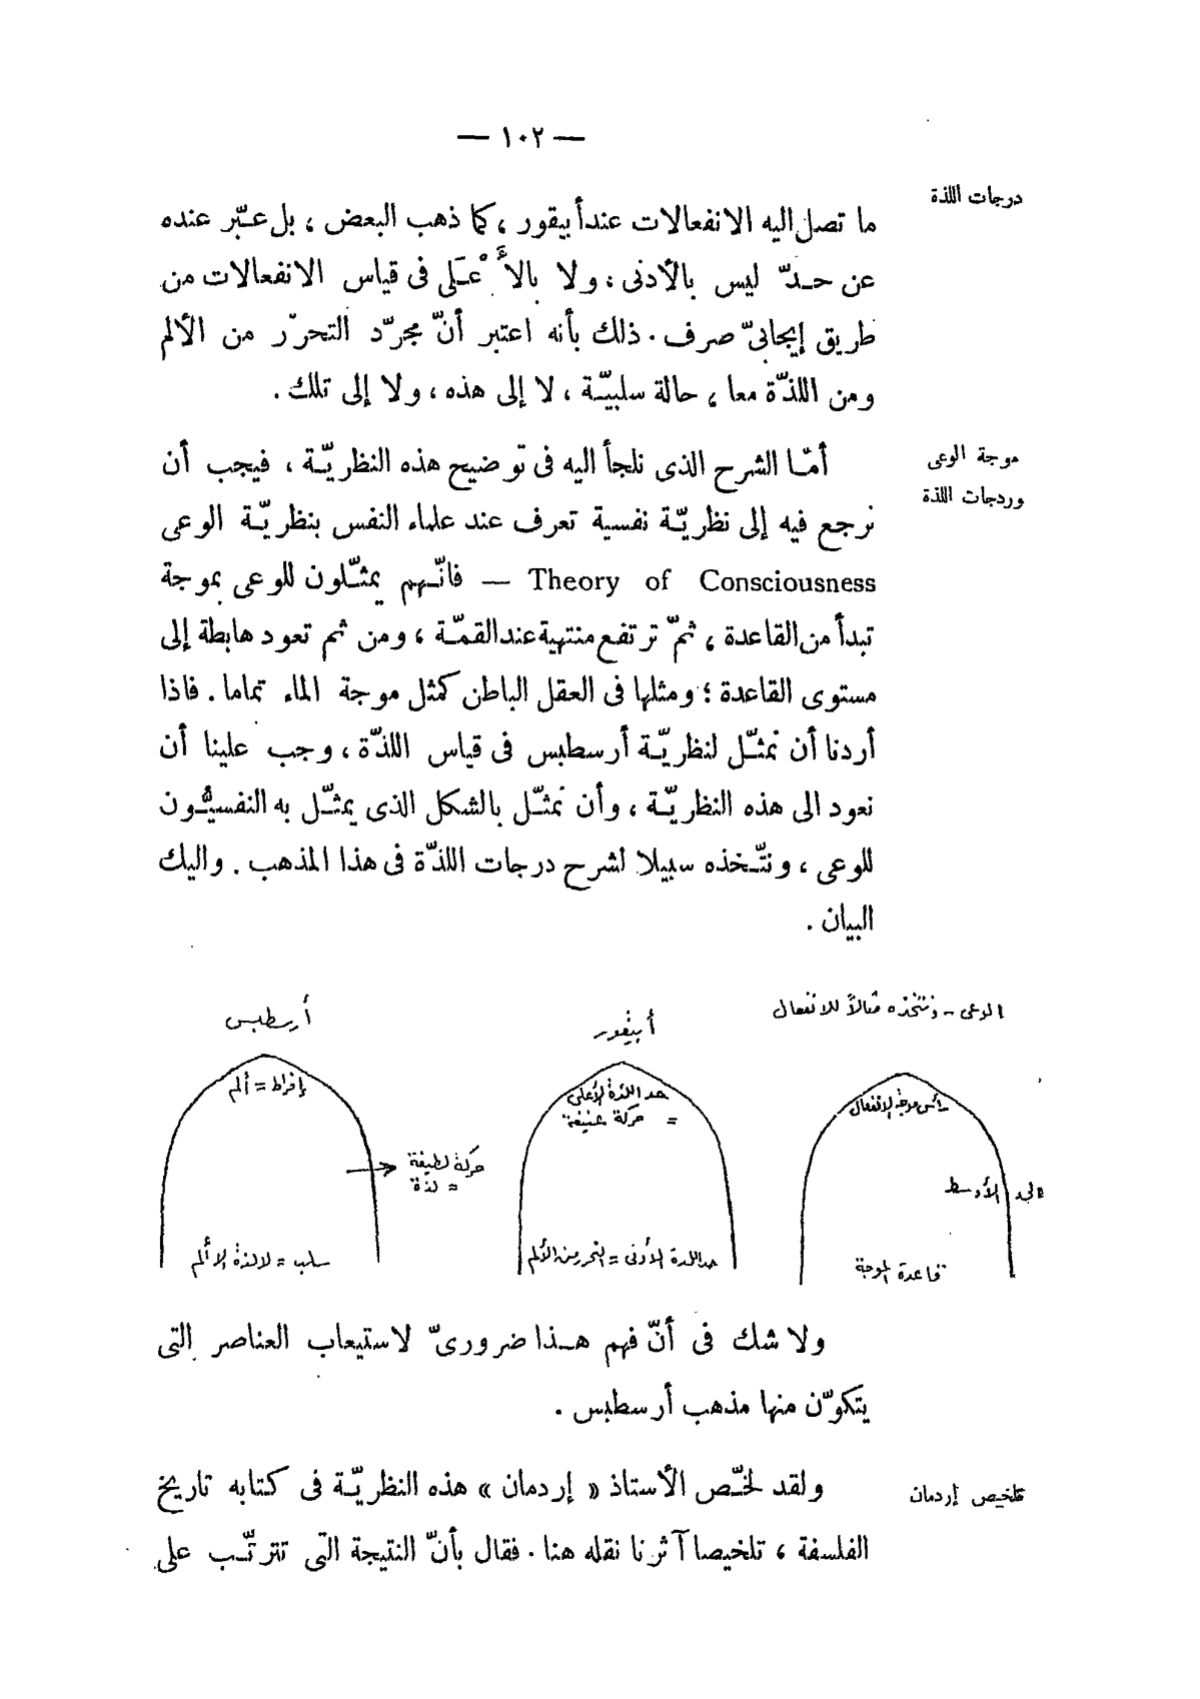 — ١٠٢ —
درجات اللذة
ما تصل اليه الانفعالات عند أبيقور ، كما ذهب البعض ، بل عبّر عنده
عن حدّ ليس بالأدنى ، ولا بالأعلى فى قياس الانفعالات من
طريق إيجابىّ صرف . ذلك بأنه اعتبر أنّ مجرّد التحرّر من الألم
ومن اللذّة معا ، حالة سلبيّة ، لا إلى هذه ، ولا إلى تلك .
موجة الوعى
ودرجات اللذة
أمّا الشرح الذى نلجأ اليه فى توضيح هذه النظريّة ، فيجب أن
نرجع فيه إلى نظريّة نفسية تعرف عند علماء النفس بنظريّة الوعى
Theory of Consciousness — فانّهم يمثّلون للوعى بموجة
تبدأ من القاعدة ، ثمّ ترتفع منتهية عند القمّة ، ومن ثم تعود هابطة إلى
مستوى القاعدة ؛ ومثلها فى العقل الباطن كمثل موجة الماء تماما . فاذا
أردنا أن نمثّل لنظريّة أرسطبس فى قياس اللذّة ، وجب علينا أن
نعود الى هذه النظريّة ، وأن نمثّل بالشكل الذى يمثّل به النفسيّون
للوعى ، ونتّخذه سبيلا لشرح درجات اللذّة فى هذا المذهب . واليك
البيان .
الوعى - ونتخذه مثالاً للانفعال
رأس موجة الانفعال
الحد الأوسط
قاعدة الموجة
أبيقور
حد اللذة الأعلى
= حركة عنيفة
حد اللذة الأدنى = التحرر من الألم
أرسطبس
إفراط = ألم
حركة لطيفة
= لذة
سلب = لا لذة لا ألم
ولا شك فى أنّ فهم هذا ضرورىّ لاستيعاب العناصر التى
يتكوّن منها مذهب أرسطبس .
تلخيص إردمان
ولقد لخّص الأستاذ « إردمان » هذه النظريّة فى كتابه تاريخ
الفلسفة ، تلخيصا آثرنا نقله هنا . فقال بأنّ النتيجة التى تترتّب على